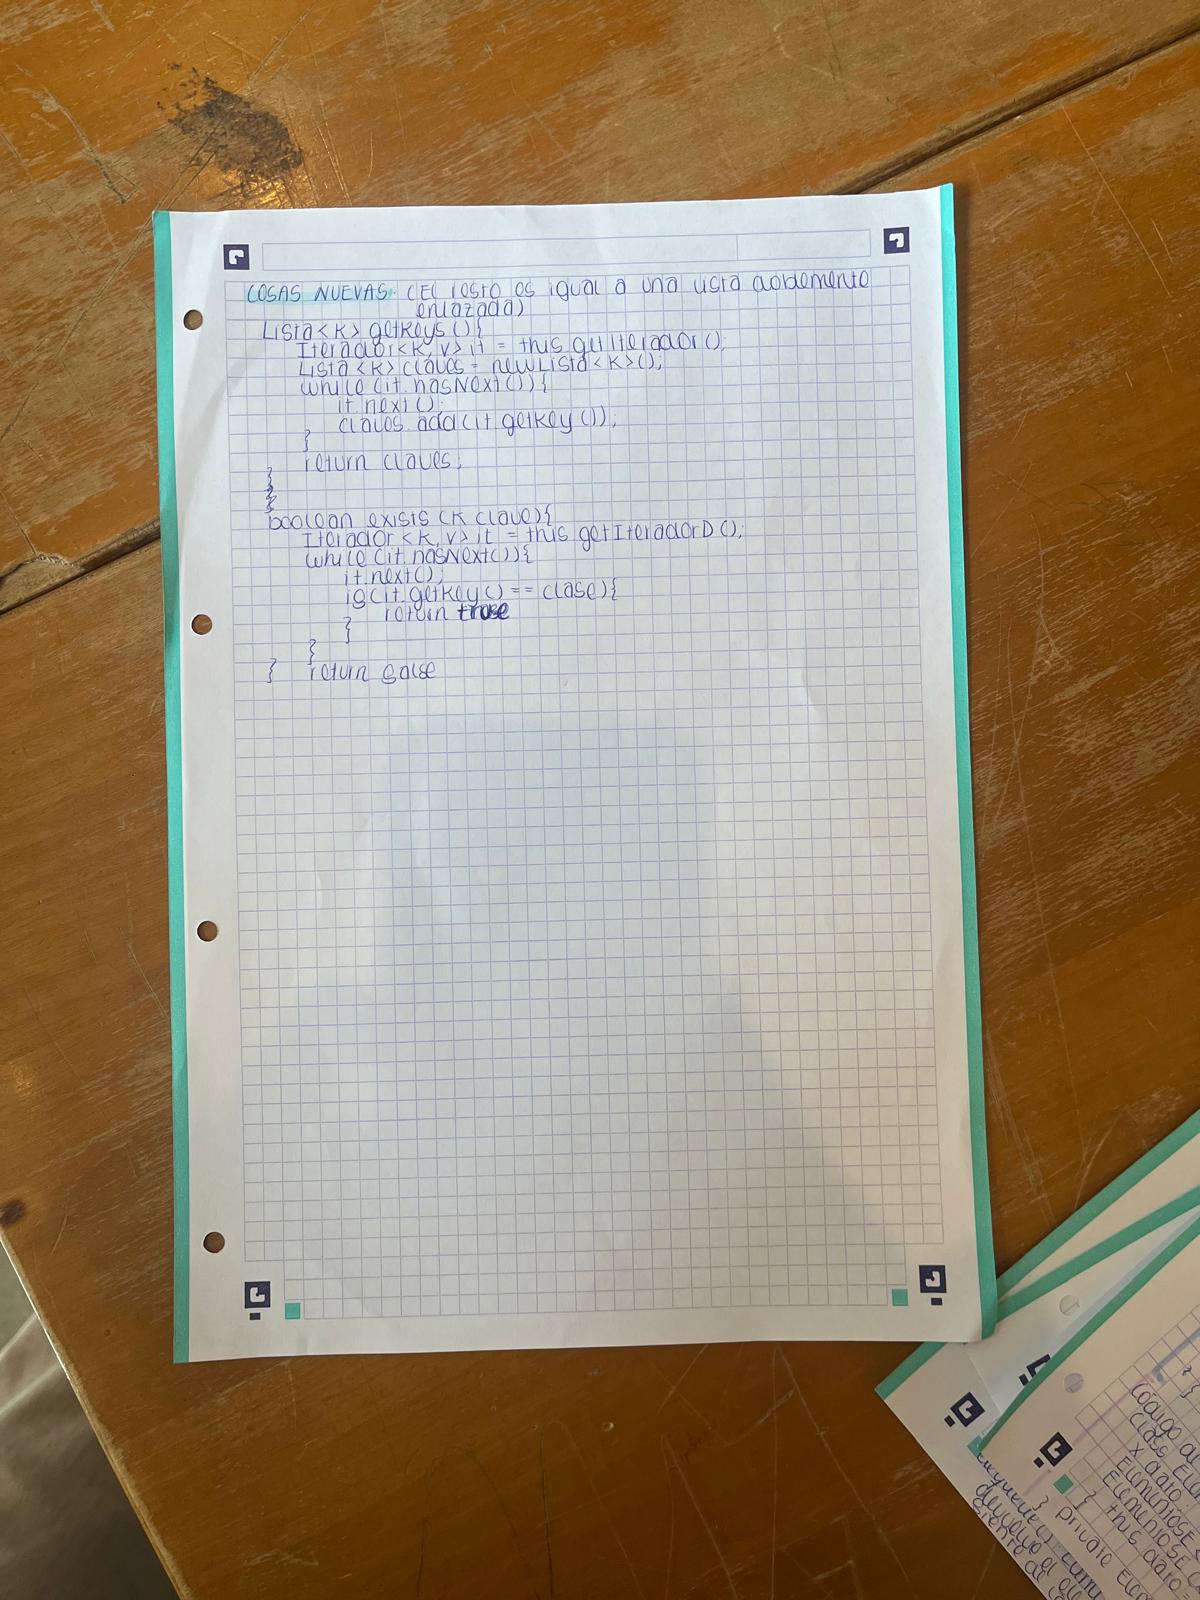 COSAS NUEVAS: (El resto es igual a una lista doblemente
enlazada)
Lista<K> getKeys(){
Iterador<K, V> it = this.getIterador();
Lista<K> claves = new Lista<K>();
while (it.hasNext()){
it.next();
claves.add(it.getKey());
}
return claves;
}
}
boolean exists (K clave){
Iterador<K, V> it = this.getIteradorD();
while (it.hasNext()){
it.next();
if(it.getKey() == clase){
return
}
}
} return false
Código
class
x dato
Elemento
ElementoSE
this.dato =
} private Elem
devuelve el